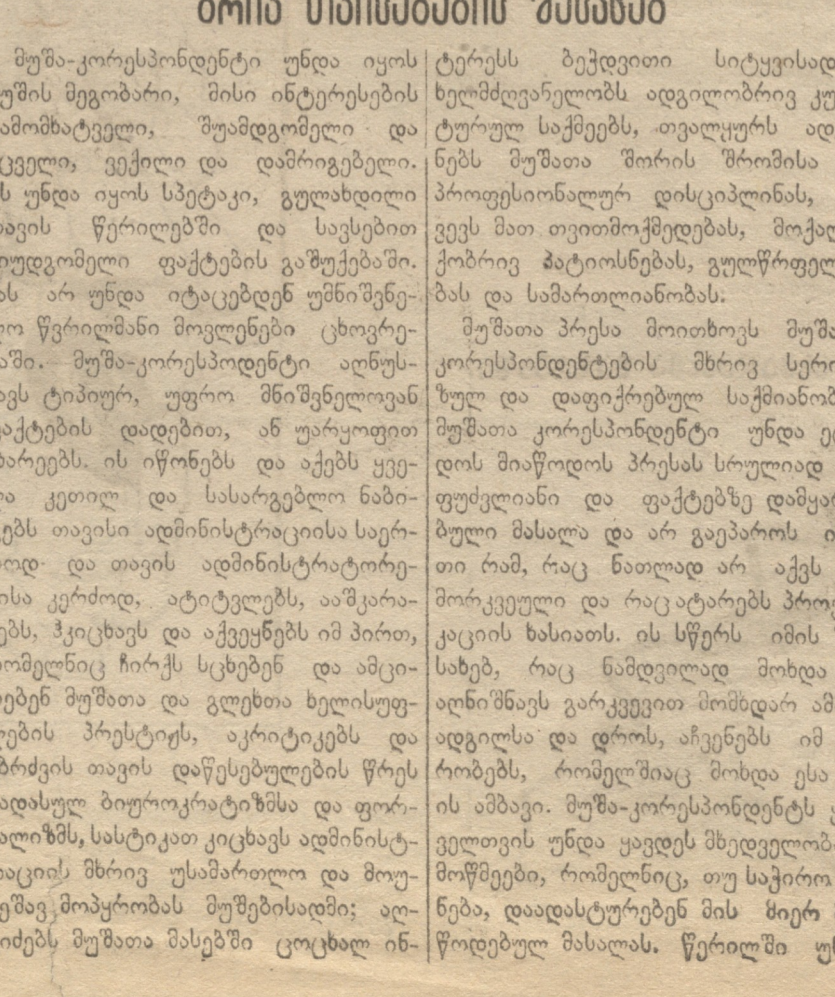 მუშა-კორესპონდენტი უნდა იყოს
უშის მეგობარი, მისი ინტერესების
ამომხატველი, შუამდგომელი და
ცველი, ვექილი და დამრიგებელი.
ს უნდა იყოს სპეტაკი, გულახდილი
ავის წერილებში და სავსებით
იუდგომელი ფაქტების გაშუქებაში.
ას არ უნდა იტაცებდენ უმნიშვნე-
ლო წვრილმანი მოვლენები ცხოვრე-
აში. მუშა-კორესპოდენტი აღნუს-
ავს ტიპიურ, უფრო მნიშვნელოვან
აქტების დადებით, ან უარყოფით
ხარეებს. ის იწონებს და აქებს ყვე-
ა კეთილ და სასარგებლო ნაბი-
ებს თავისი ადმინისტრაციისა საერ-
ოდ და თავის ადმინისტრატორე-
ისა კერძოდ, ატიტვლებს, ააშკარა-
ებს, ჰკიცხავს და აქვეყნებს იმ პირთ,
ომელნიც ჩირქს სცხებენ და ამცი-
ებენ მუშათა და გლეხთა ხელისუფ-
ლების პრესტიჟს, აკრიტიკებს და
ბრძვის თავის დაწესებულების წრეს
ადასულ ბიუროკრატიზმსა და ფორ-
ალიზმს, სასტიკათ კიცხავს ადმინისტ-
აციის მხრივ უსამართლო და მოუ-
ეშავ მოპყრობას მუშებისადმი; აღ-
იძებს მუშათა მასებში ცოცხალ ინ-
ტერესს ბეჭდვითი სიტყვისად
ხელმძღვანელობს ადგილობრივ კუ
ტურულ საქმეებს, თვალყურს ად
ნებს მუშათა შორის შრომისა
პროფესიონალურ დისციპლინას,
ვევს მათ თვითმოქმედებას, მოქალ
ქობრივ პატიოსნებას, გულწრფელ
ბას და სამართლიანობას.
მუშათა პრესა მოითხოვს მუშა
კორესპონდენტების მხრივ სერი
ზულ და დაფიქრებულ საქმიანობ
მუშათა კორესპონდენტი უნდა ეც
დოს მიაწოდოს პრესას სრულიად
ფუძვლიანი და ფაქტებზე დამყარ
ბული მასალა და არ გაეპაროს ი
თი რამ, რაც ნათლად არ აქვს
მორკვეული და რაც ატარებს პროვ
კაციის ხასიათს. ის სწერს იმის
სახებ, რაც ნამდვილად მოხდა
აღნიშნავს გარკვევით მომხდარ ამ
ადგილსა და დროს, აჩვენებს იმ
რობებს, რომელშიაც მოხდა ესა
ის ამბავი. მუშა-კორესპონდენტს ყ
ველთვის უნდა ყავდეს მხედველობა
მოწმეები, რომელნიც, თუ საჭირო
ნება, დაადასტურებენ მის მიერ
წოდებულ მასალას. წერილში უნ